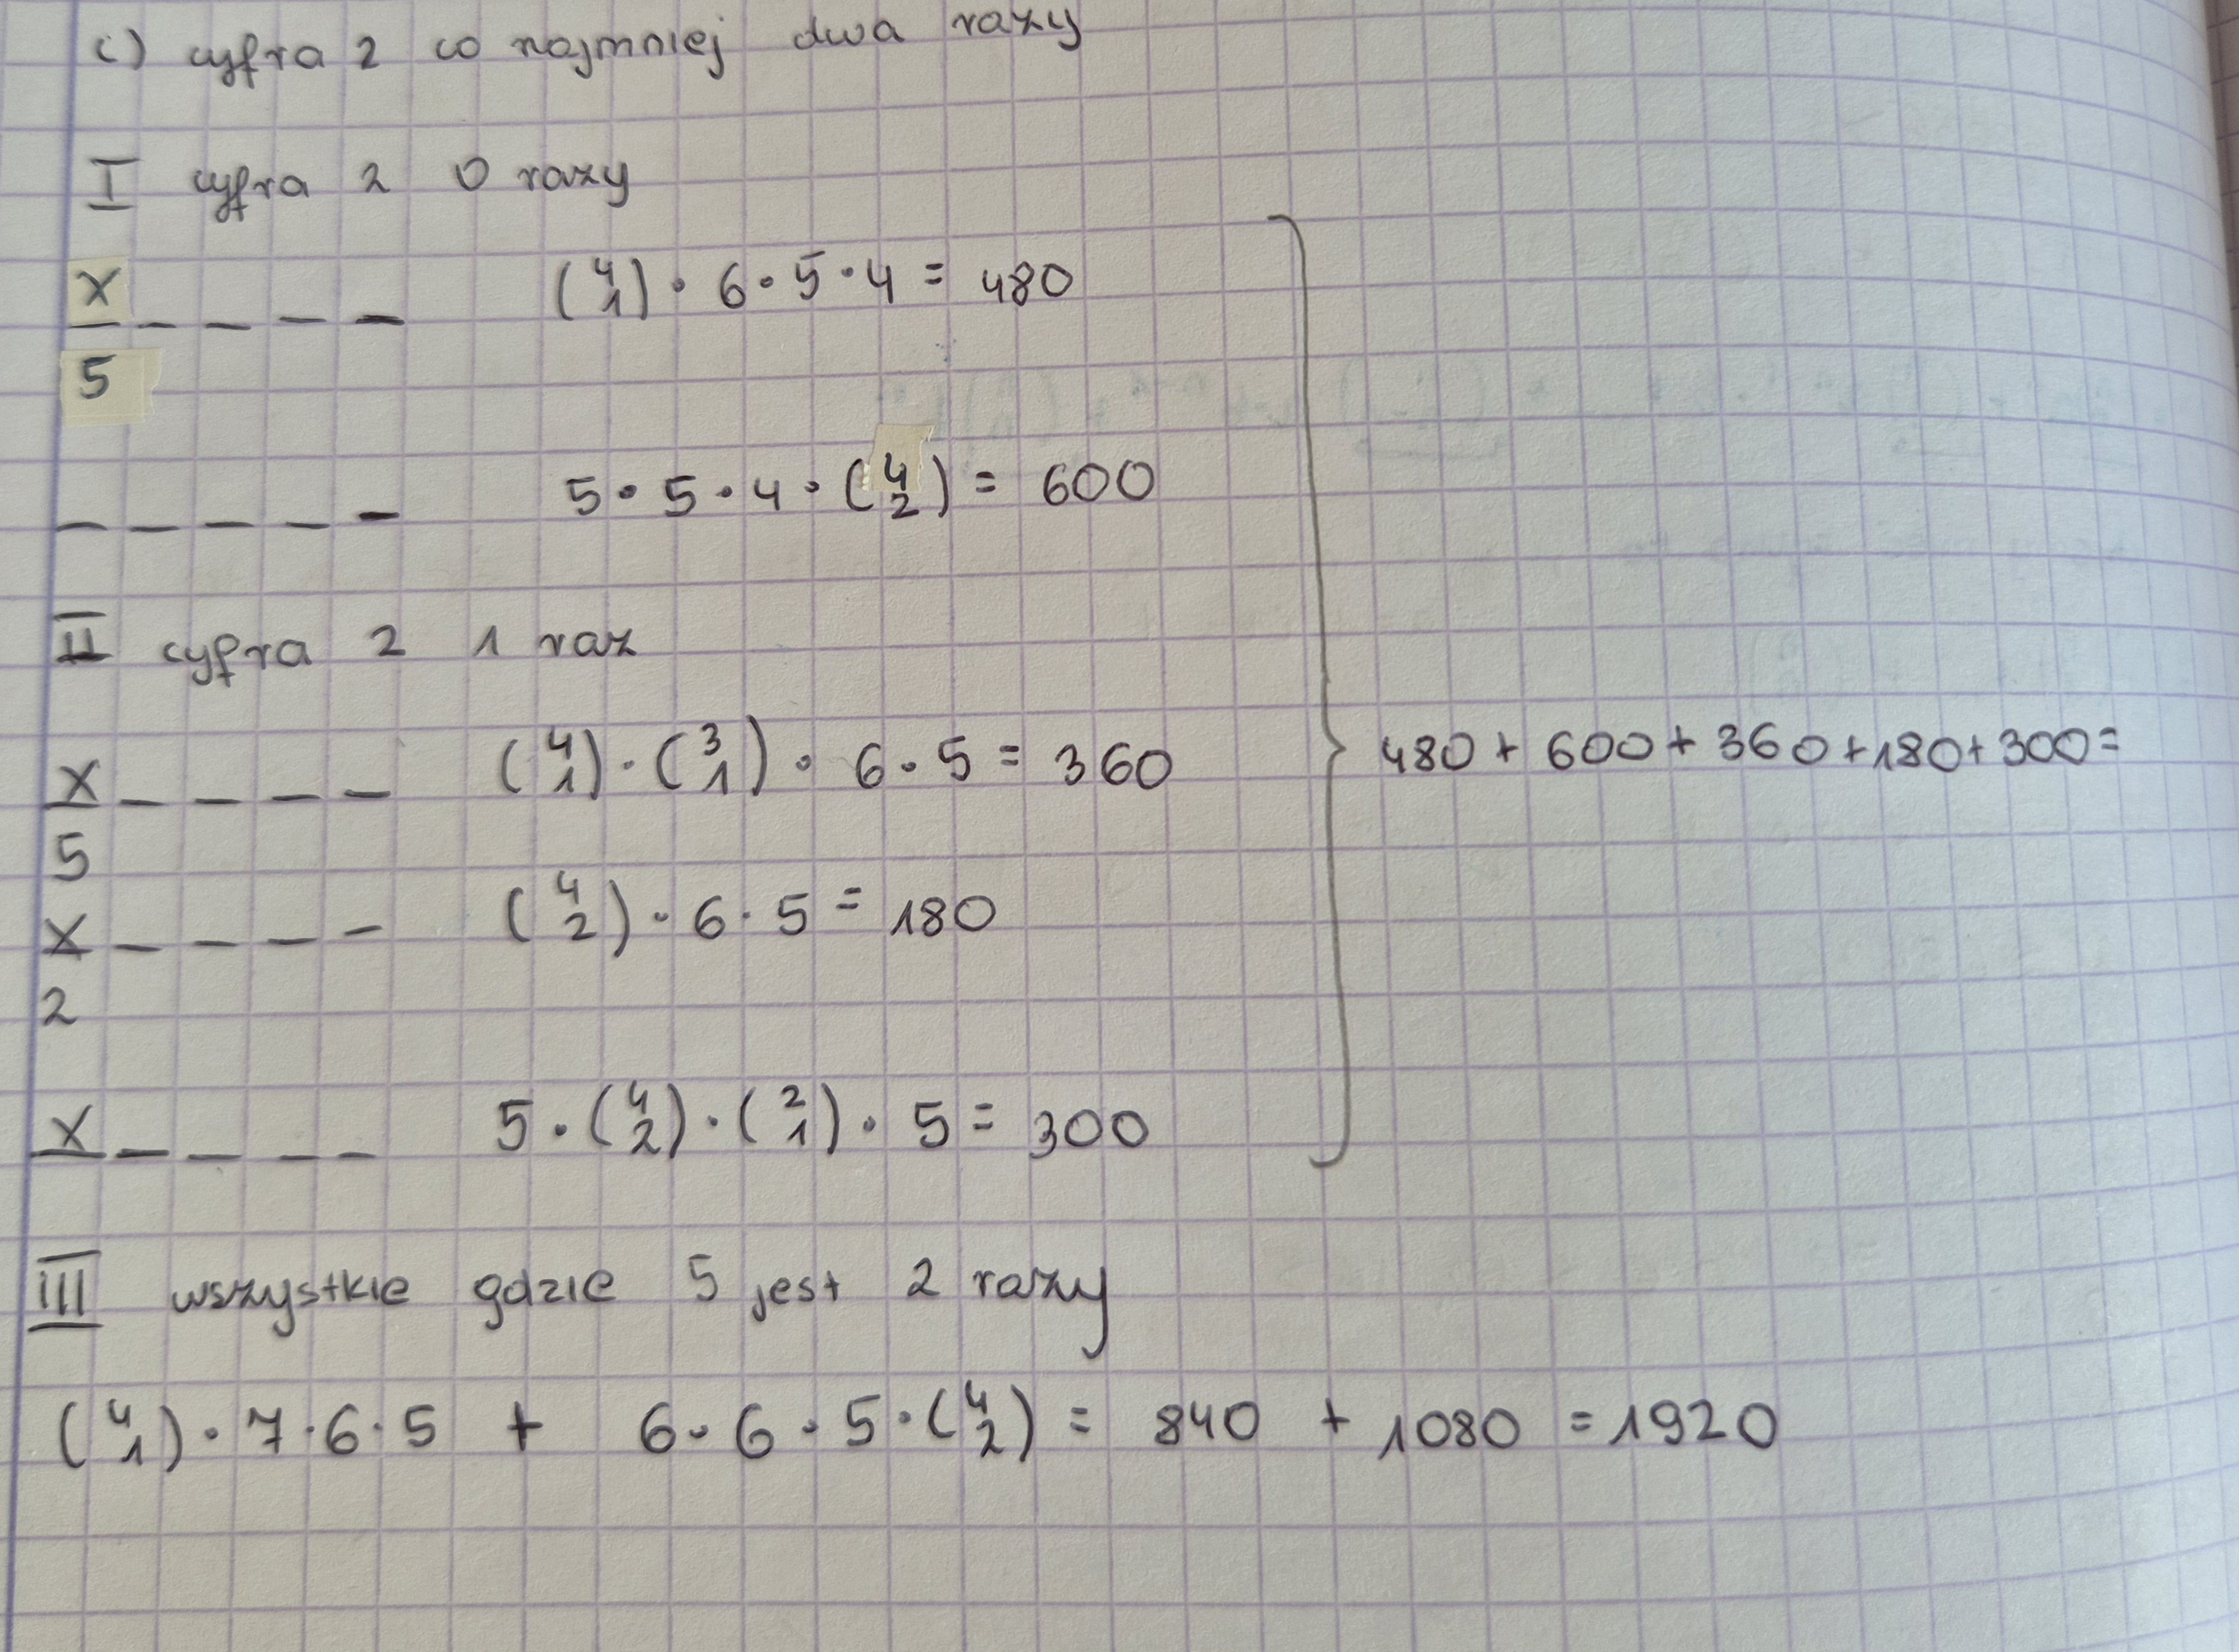 c) cyfra 2 co najmniej dwa razy
I cyfra 2 0 razy
x _ _ _ _ (4 1) · 6 · 5 · 4 = 480
5
_ _ _ _ _ 5 · 5 · 4 · (4 2) = 600
II cyfra 2 1 raz
x _ _ _ _ (4 1) · (3 1) · 6 · 5 = 360
5
480 + 600 + 360 + 180 + 300 =
x _ _ _ _ (4 2) · 6 · 5 = 180
2
x _ _ _ _ 5 · (4 2) · (2 1) · 5 = 300
III wszystkie gdzie 5 jest 2 razy
(4 1) · 7 · 6 · 5 + 6 · 6 · 5 · (4 2) = 840 + 1080 = 1920